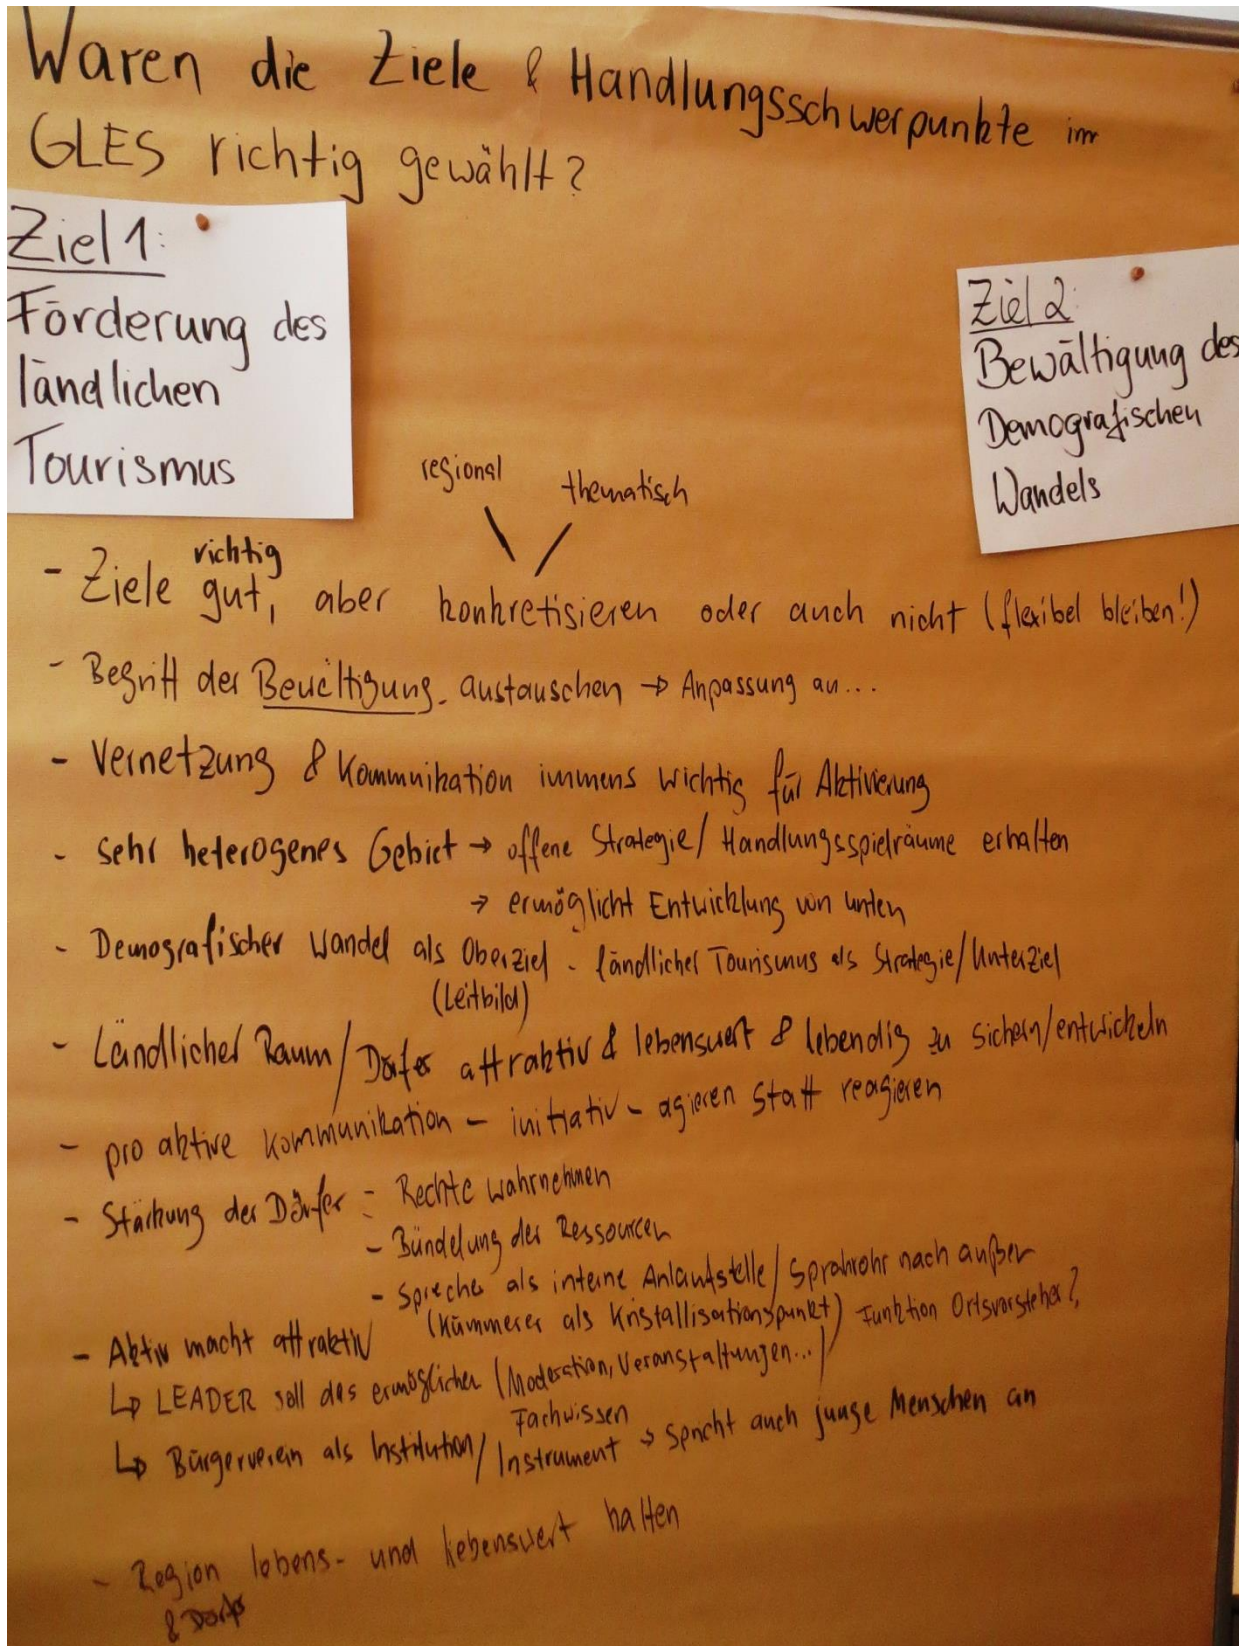 Waren die Ziele & Handlungsschwerpunkte im
GLES richtig gewählt?
Ziel 1:
Förderung des
ländlichen
Tourismus
Ziel 2:
Bewältigung des
Demografischen
Wandels
regional
thematisch
richtig
- Ziele gut, aber konkretisieren oder auch nicht (flexibel bleiben!)
- Begriff der Bewältigung austauschen → Anpassung an...
- Vernetzung & Kommunikation immens wichtig für Aktivierung
- sehr heterogenes Gebiet → offene Strategie/Handlungsspielräume erhalten
→ ermöglicht Entwicklung von unten
- Demografischer Wandel als Oberziel - ländlicher Tourismus als Strategie/Unterziel
(Leitbild)
- Ländlicher Raum/Dörfer attraktiv & lebenswert & lebendig zu sichern/entwickeln
- pro aktive Kommunikation - initiativ - agieren statt reagieren
- Stärkung der Dörfer - Rechte wahrnehmen
- Bündelung der Ressourcen
- Sprecher als interne Anlaufstelle/Sprahrohr nach außen
(Kümmerer als Kristallisationspunkt) Funktion Ortsvorsteher?
- Aktiv macht attraktiv
↳ LEADER soll das ermöglichen (Moderation, Veranstaltungen...)
Fachwissen
↳ Bürgerverein als Institution/Instrument → spricht auch junge Menschen an
- Region lebens- und liebenswert halten
& Dörfer